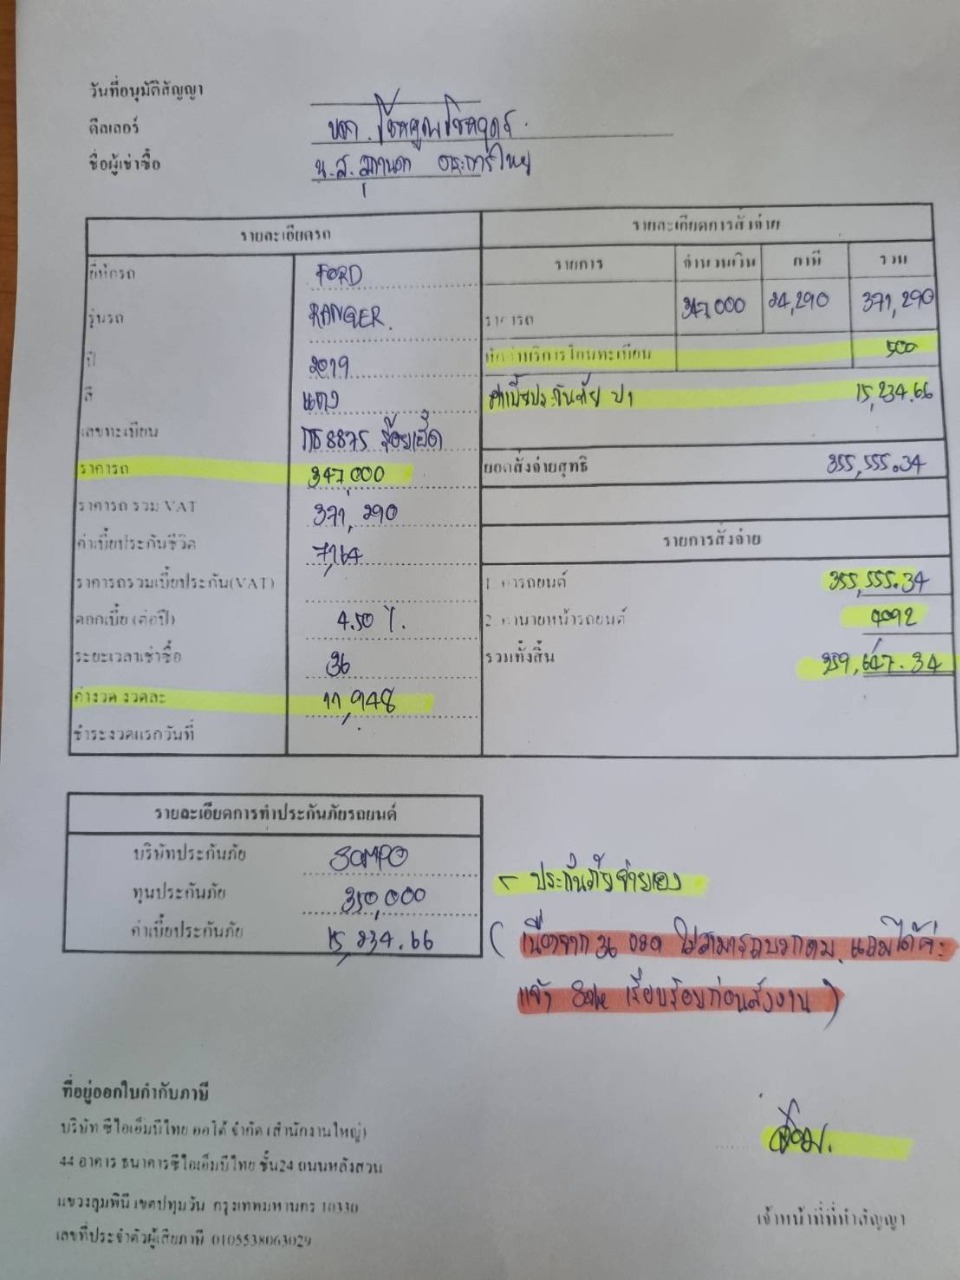 วันที่อนุมัติสัญญา
ดีลเลอร์ บจก. โชคคูณโชคจูตร์
ชื่อผู้เช่าซื้อ น.ส.
รายละเอียดรถ
ยี่ห้อรถ FORD
รุ่นรถ RANGER.
ปี 2019
สี แดง
เลขทะเบียน 8875 ร้อยเอ็ด
ราคารถ 347,000
ราคารถ รวม VAT 371,290
ค่าเบี้ยประกันชีวิต 7,164
ราคารถรวมเบี้ยประกัน(VAT)
ดอกเบี้ย (ต่อปี) 4.50 %.
ระยะเวลาเช่าซื้อ 36
ค่างวด งวดละ 11,948
ชำระงวดแรกวันที่
รายละเอียดการสั่งจ่าย
รายการ จำนวนเงิน ภาษี รวม
ราคารถ 347,000 24,290 371,290
หัก ค่าบริการโอนทะเบียน 500
ค่าเบี้ยประกันภัย ป1 15,234.66
ยอดสั่งจ่ายสุทธิ 355,555.34
รายการสั่งจ่าย
1. ค่ารถยนต์ 355,555.34
2. ค่านายหน้ารถยนต์ 4092
รวมทั้งสิ้น 359,647.34
รายละเอียดการทำประกันภัยรถยนต์
บริษัทประกันภัย SOMPO
ทุนประกันภัย 350,000
ค่าเบี้ยประกันภัย 15,234.66
- ประกันภัยจ่ายเอง
( เนื่องจาก 36 งวด ไม่สามารถบวกคอม แถมได้ค่ะ
แจ้ง Sale เรียบร้อยก่อนส่งงาน )
ที่อยู่ออกใบกำกับภาษี
บริษัท ซีไอเอ็มบีไทย ออโต้ จำกัด (สำนักงานใหญ่)
44 อาคาร ธนาคารซีไอเอ็มบีไทย ชั้น24 ถนนหลังสวน
แขวงลุมพินี เขตปทุมวัน กรุงเทพมหานคร 10330
เลขที่ประจำตัวผู้เสียภาษี 0105538063029
เจ้าหน้าที่ที่ทำสัญญา